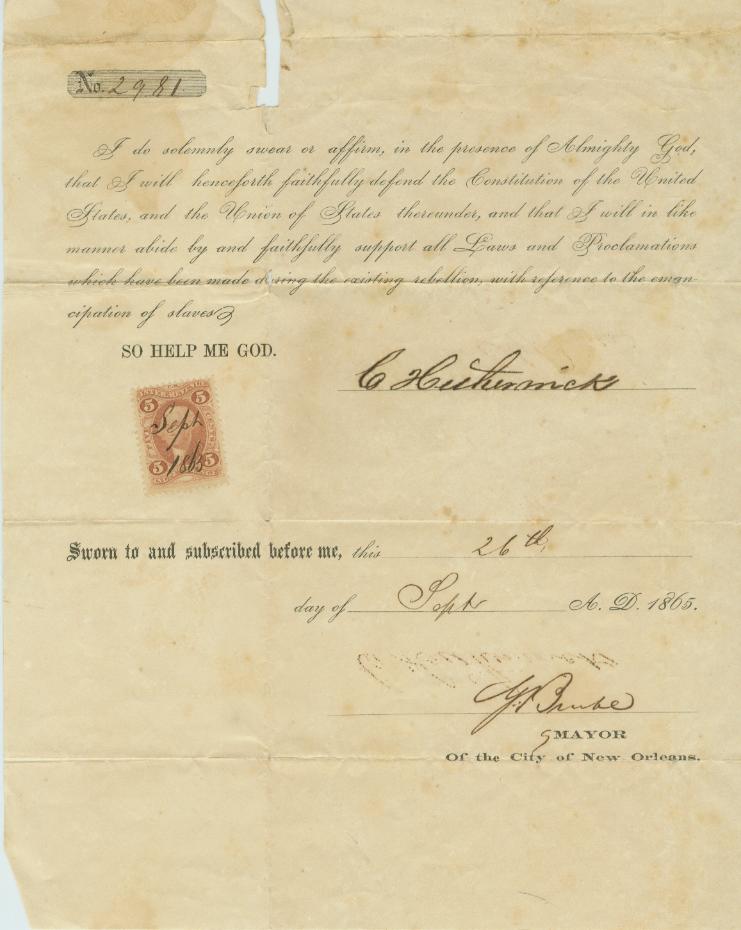 No. 2981
I do solemnly swear or affirm, in the presence of Almighty God,
that I will henceforth faithfully defend the Constitution of the United
States, and the Union of States thereunder, and that I will in like
manner abide by and faithfully support all Laws and Proclamations
which have been made during the existing rebellion, with reference to the eman-
cipation of slaves
SO HELP ME GOD.
C
5 5
Sept
1865
5 5
Sworn to and subscribed before me, this 26th,
day of Sept A. D. 1865.
MAYOR
Of the City of New Orleans.